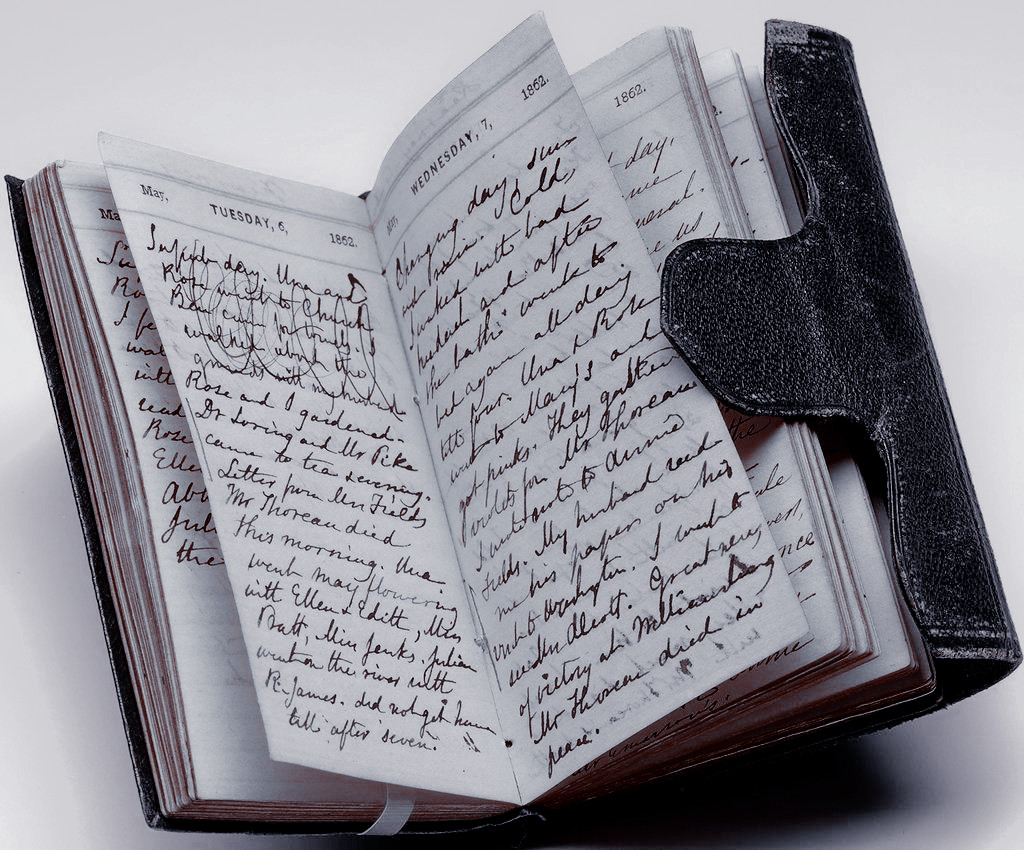 May,
TUESDAY, 6,
1862.
day. Una and
Rose went to Church
walked about the
grounds with my husband
Rose and I gardened.
Dr Loring and Mr Pike
came to tea & evening.
Letter from Mrs Fields
Mr Thoreau died
this morning. Una
went May flowering
with Ellen & Edith, Miss
Bull, Miss Jenks, Julian
went on the river with
R. James. did not get home
till after seven.
May,
WEDNESDAY, 7,
1862.
Changing day, sun
and rain. Cold,
I waked with bad
headache and after
the bath went to
bed again all day
till four. Una & Rose
went into Mary's and
got pinks. They gathered
violets for Mr Thoreau
I wrote to Annie
Fields. My husband read
me his papers on his
visit to Washington. I went to
see Mr Alcott. Great news
of victory at Williamsburg
Mr Thoreau died in
peace.
Ma
I fe
wal
with
read
Rose
Elle
Abb
Jul
the
1862.
day,
me
neral.
e us
the
ule
ence